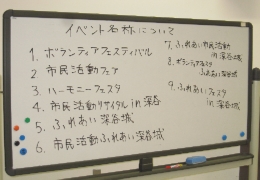 イベント名称について
1. ボランティアフェスティバル
2. 市民活動フェア
3. ハーモニーフェスタ
4. 市民活動リサイタル in 深谷
5. ふれあい深谷城
6. 市民活動ふれあい深谷城
7. ふれあい市民活動
in 深谷城
8. ボランティアフェスタ
ふれあい深谷城
9. ふれあいフェスタ
in 深谷城